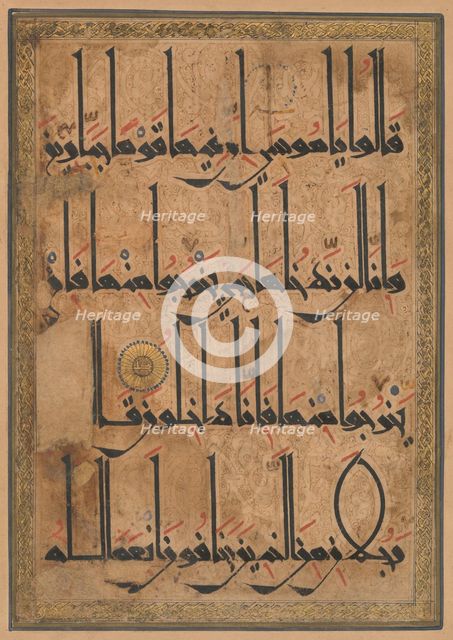 قالوا ياموسى ان فيها قوما جبارين
وانا لن ندخلها حتى يخرجوا منها فان
يخرجوا منها فانا داخلون قال
رجلان من الذين يخافون انعم الله
Heritage Heritage
Heritage Heritage
©
Heritage Heritage
Heritage Heritage